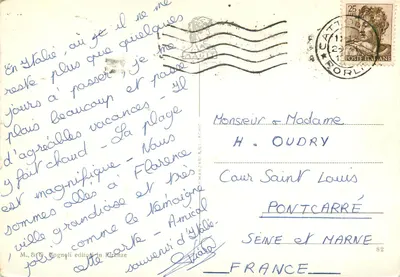 En Italie, où je il ne me
reste plus que quelques
jours à passer, je me
plais beaucoup et passe
d'agréables vacances - Il
y fait chaud - La plage
est magnifique - Nous
sommes allés à Florence
ville grandiose et très
jolie comme le témoigne
cette carte - Amical
souvenir d'Italie.
Monsieur & Madame
H. OUDRY
Cour Saint Louis
PONTCARRÉ
SEINE et MARNE
FRANCE
FORLI
25
POSTE ITALIANE
62